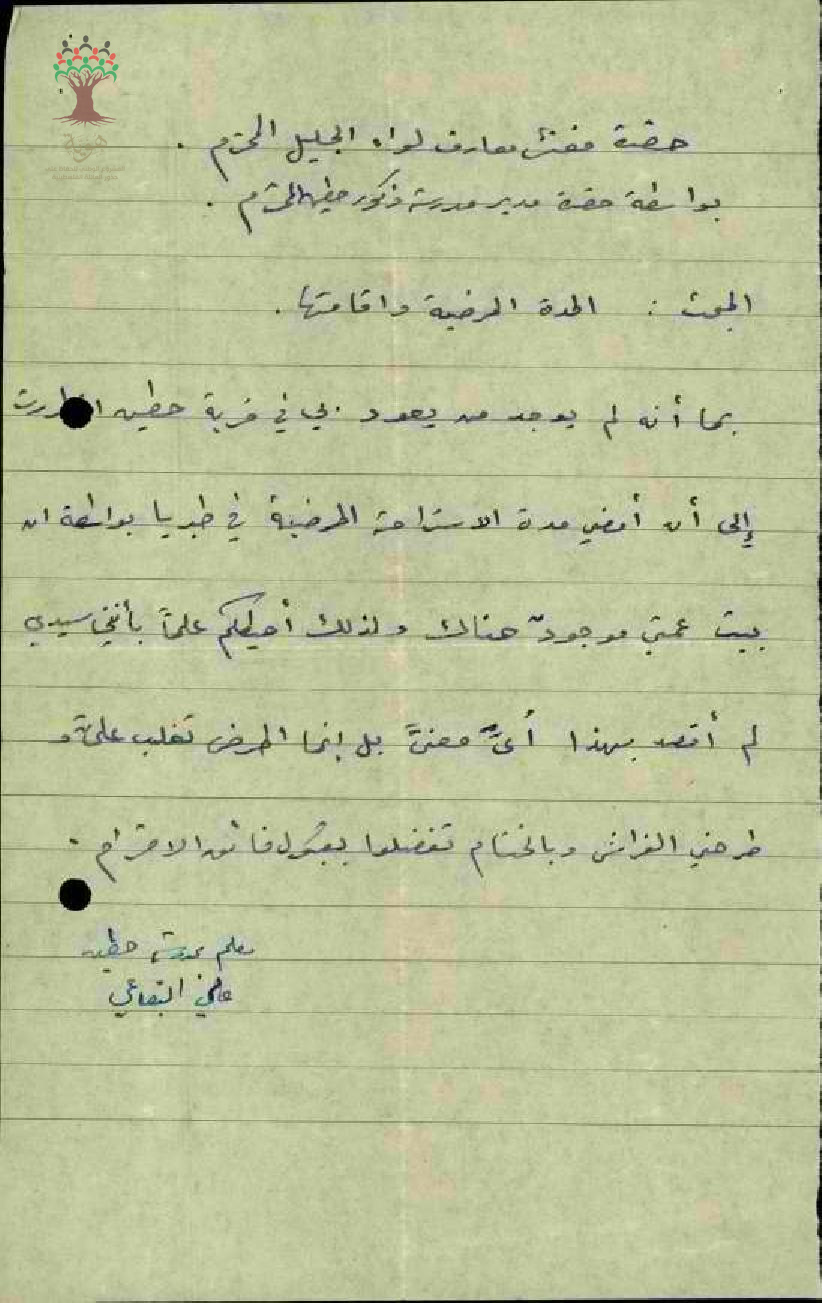 هوية
حضرة مفتش معارف لواء الجليل المحترم .
بواسطة حضرة مدير مدرسة ذكور حطين المحترم .
المبحث : المدة المرضية واقامتها .
بما أنه لم يوجد من يعود بي في قرية حطين اضطررت
إلى أن أمضي مدة الاستراحة المرضية في طبريا بواسطة ان
بيت عمتي موجودٌ هنالك ولذلك أحيطكم علماً بأنني سيدي
لم أقصد بهذا أيَّ معنىً بل إنما المرض تغلب عليَّ و
طرحني الفراش وبالختام تفضلوا بقبول فائق الاحترام .
معلم مدرسة حطين